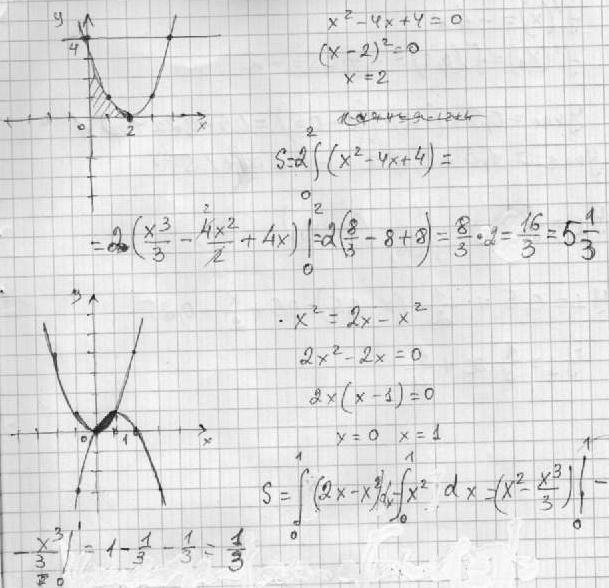 y
4
0
2
x
x² - 4x + 4 = 0
(x - 2)² = 0
x = 2
S = 2∫₀² (x² - 4x + 4) =
= 2(x³/3 - 4x²/2 + 4x)|₀² = 2(8/3 - 8 + 8) = 8/3 · 2 = 16/3 = 5 1/3
y
0
1
x
x² = 2x - x²
2x² - 2x = 0
2x(x - 1) = 0
x = 0 x = 1
S = ∫₀¹ (2x - x²)dx - ∫₀¹ x² dx = (x² - x³/3)|₀¹ -
- x³/3|₀¹ = 1 - 1/3 - 1/3 = 1/3